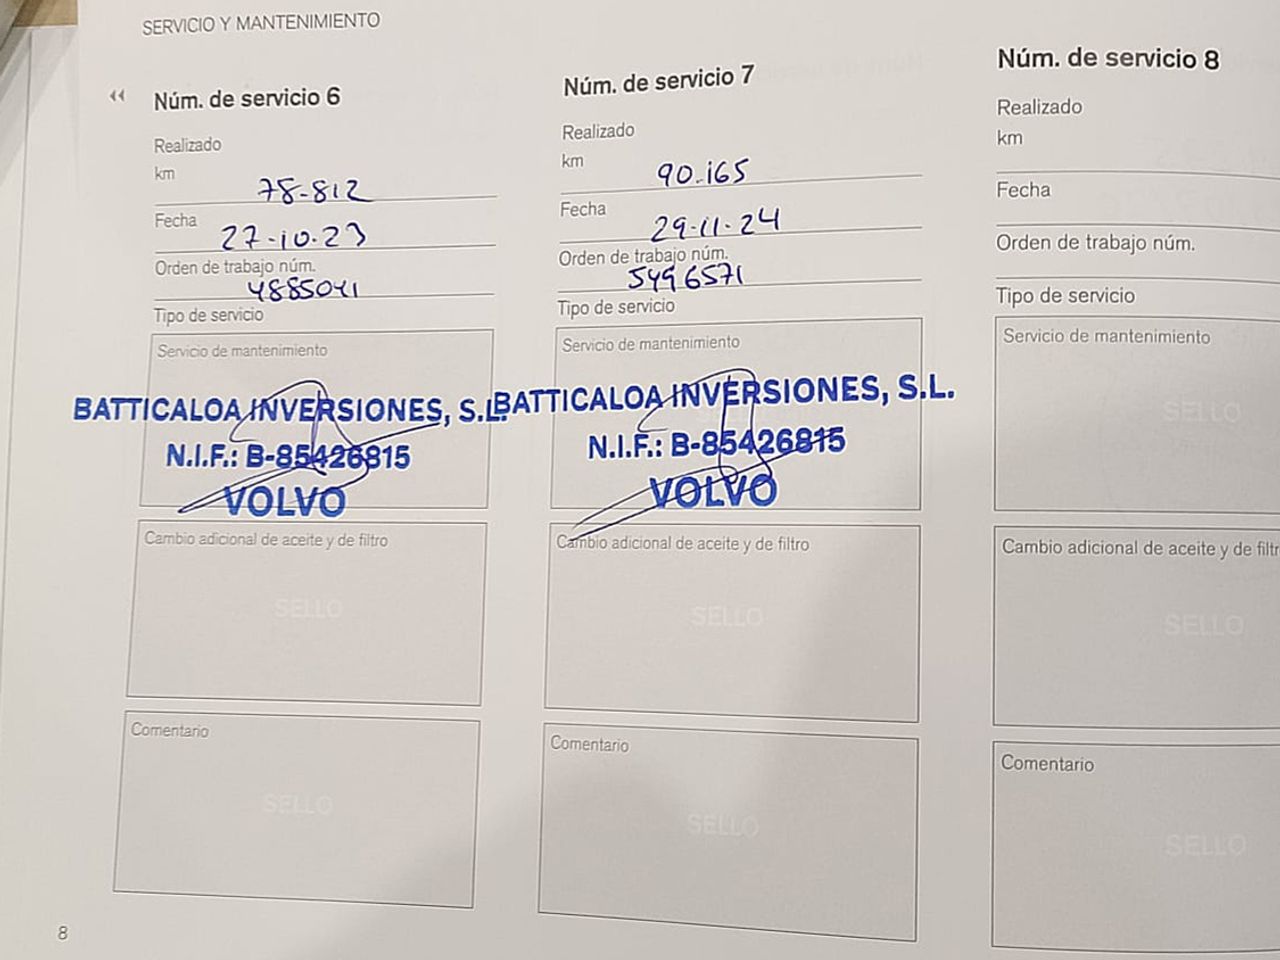 SERVICIO Y MANTENIMIENTO
Núm. de servicio 6
Realizado
km
78-812
Fecha
27-10-23
Orden de trabajo núm.
4885041
Tipo de servicio
Servicio de mantenimiento
BATTICALOA INVERSIONES, S.L.
N.I.F.: B-85426815
VOLVO
Cambio adicional de aceite y de filtro
SELLO
Comentario
SELLO
8
Núm. de servicio 7
Realizado
km
90.165
Fecha
29-11-24
Orden de trabajo núm.
5496571
Tipo de servicio
Servicio de mantenimiento
BATTICALOA INVERSIONES, S.L.
N.I.F.: B-85426815
VOLVO
Cambio adicional de aceite y de filtro
SELLO
Comentario
SELLO
Núm. de servicio 8
Realizado
km
Fecha
Orden de trabajo núm.
Tipo de servicio
Servicio de mantenimiento
SELLO
Cambio adicional de aceite y de filtr
SELLO
Comentario
SELLO